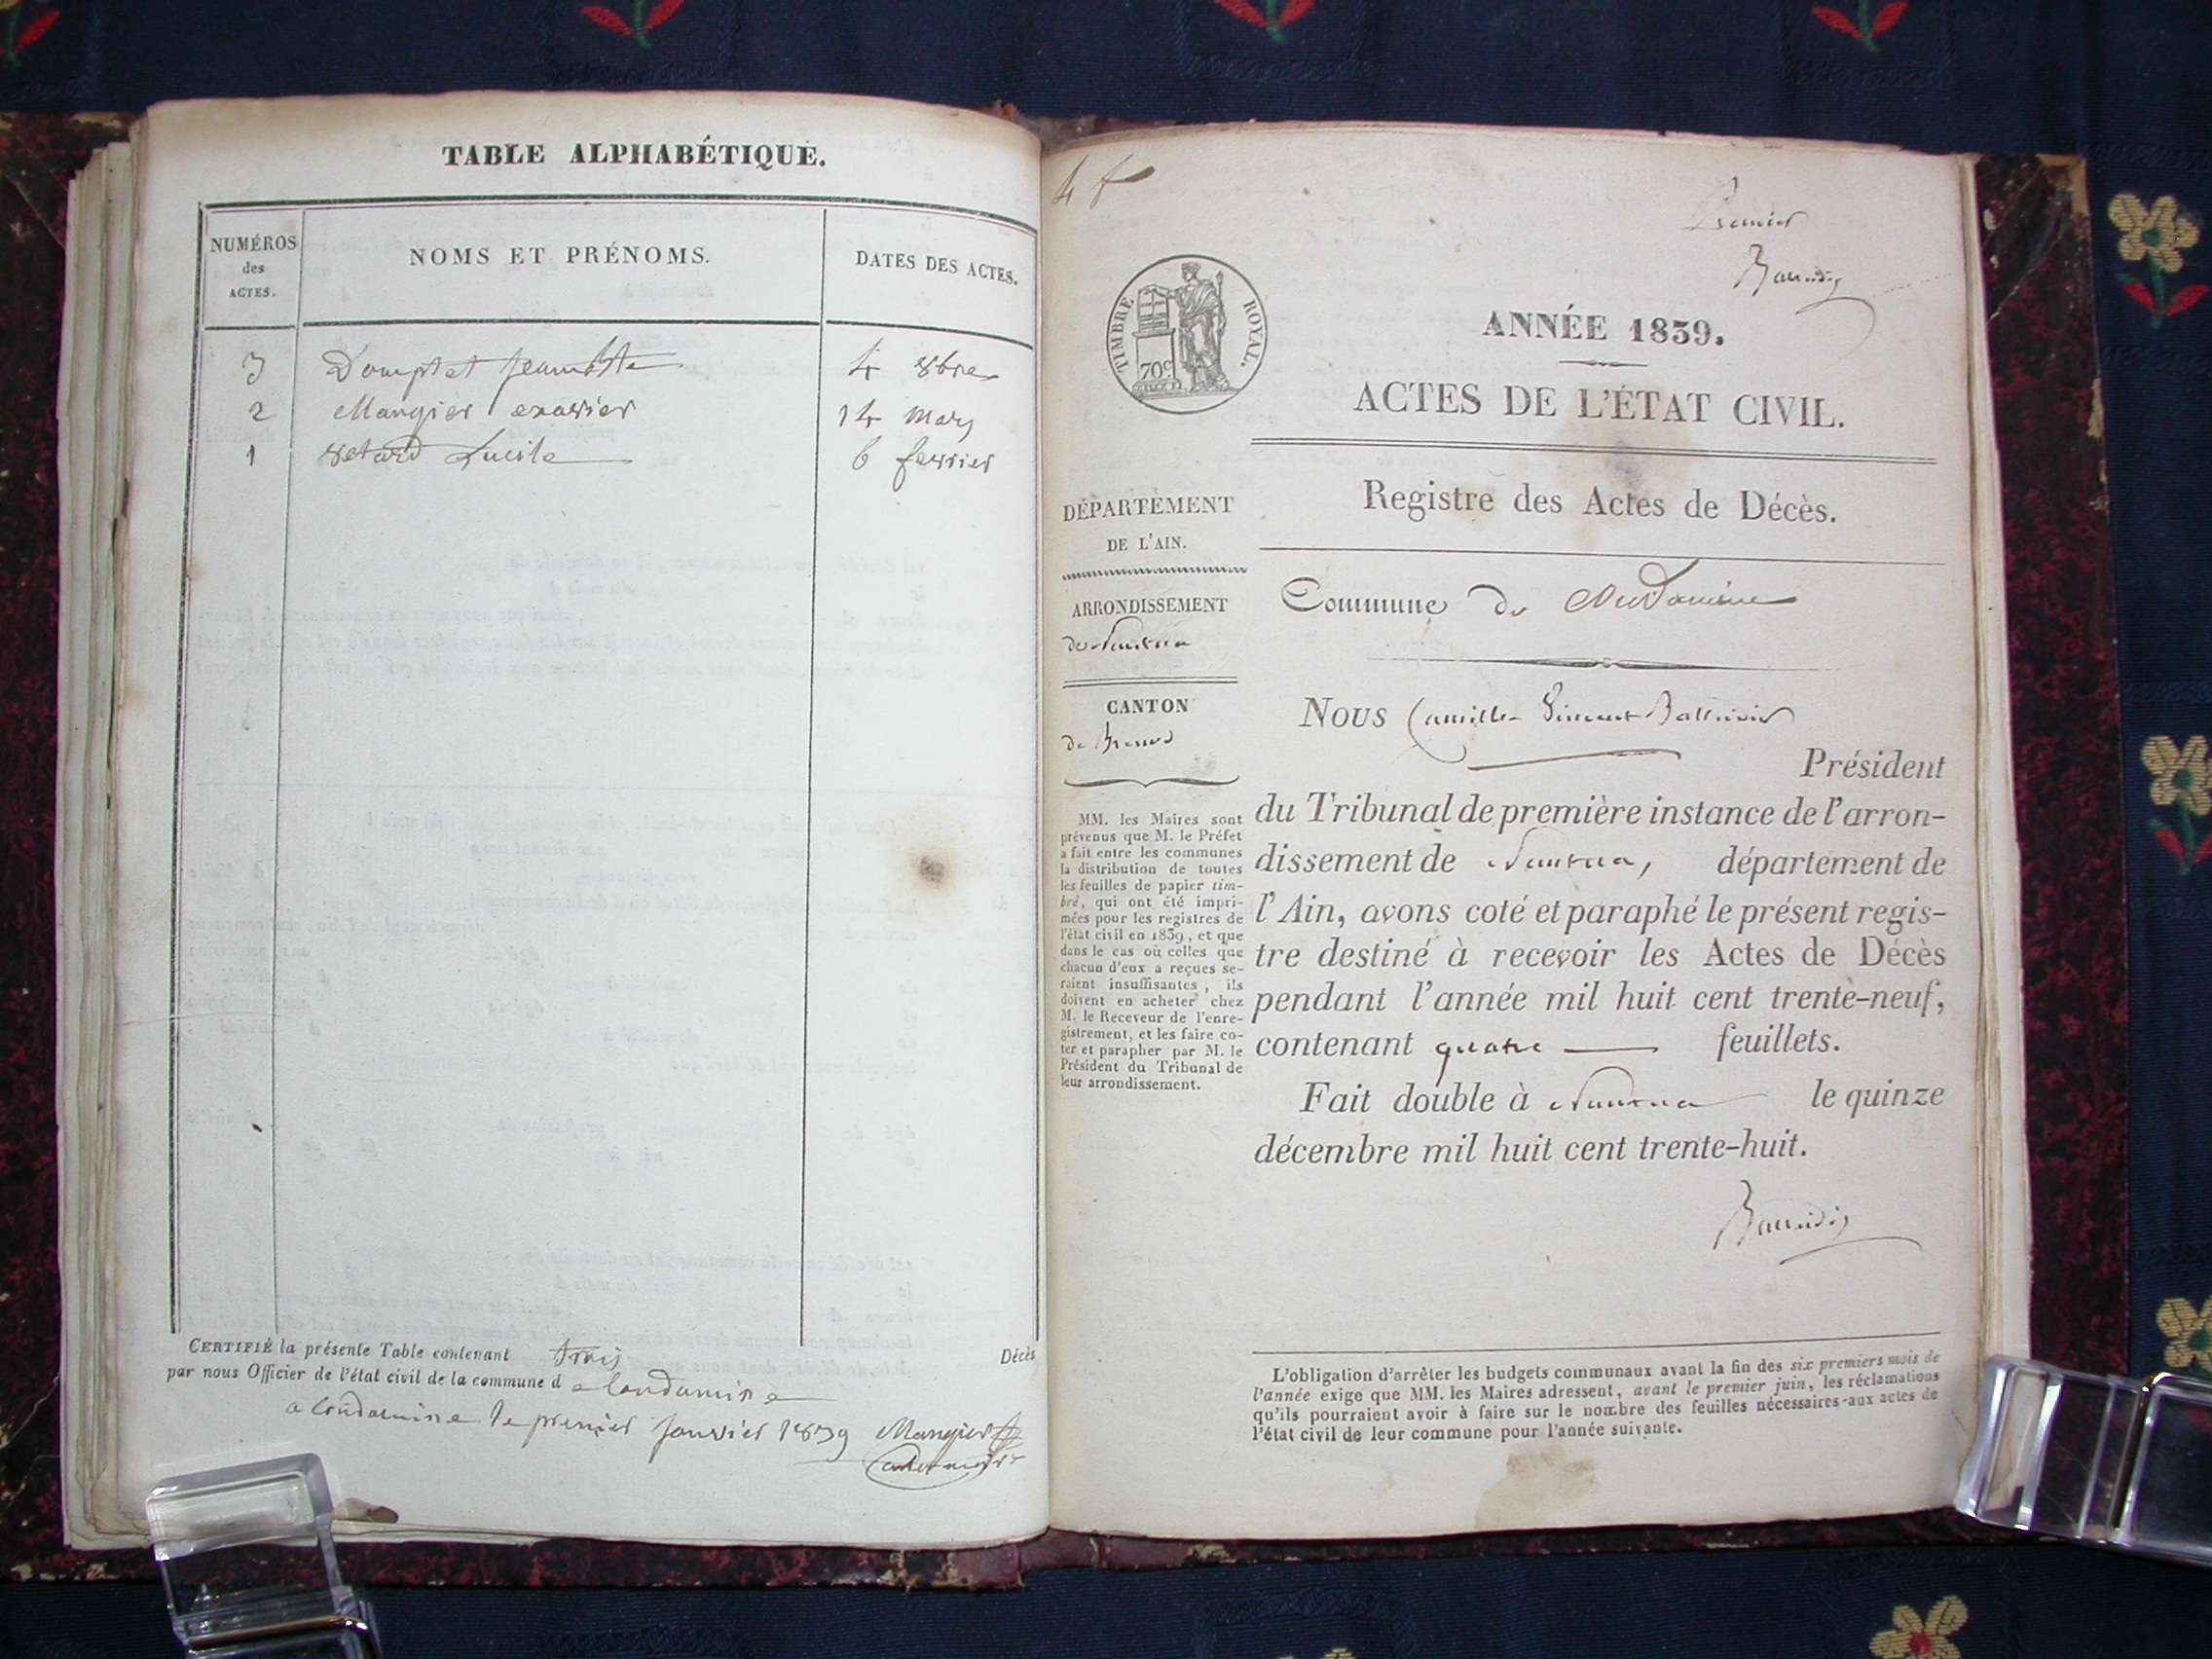 TABLE ALPHABÉTIQUE.
NUMÉROS
des
ACTES.
NOMS ET PRÉNOMS.
DATES DES ACTES.
3 Domptet Jeanette 4 8bre
2 Mangier exavier 14 mars
1 Lucile 6 fevrier
CERTIFIÉ la présente Table contenant trois Décès
par nous Officier de l'état civil de la commune d e Condamine
a Condamine le premier Janvier 1839 Mangier
4 f
Premier
TIMBRE ROYAL.
70c
ANNÉE 1839.
ACTES DE L'ÉTAT CIVIL.
Registre des Actes de Décès.
DÉPARTEMENT
DE L'AIN.
ARRONDISSEMENT
de Nantua
CANTON
de Brenod
MM. les Maires sont
prévenus que M. le Préfet
a fait entre les communes
la distribution de toutes
les feuilles de papier tim-
bré, qui ont été impri-
mées pour les registres de
l'état civil en 1839, et que
dans le cas où celles que
chacun d'eux a reçues se-
raient insuffisantes, ils
doivent en acheter chez
M. le Receveur de l'enre-
gistrement, et les faire co-
ter et parapher par M. le
Président du Tribunal de
leur arrondissement.
Commune de
Nous Camille Vincent
Président
du Tribunal de première instance de l'arron-
dissement de Nantua, département de
l'Ain, avons coté et paraphé le présent regis-
tre destiné à recevoir les Actes de Décès
pendant l'année mil huit cent trente-neuf,
contenant quatre feuillets.
Fait double à Nantua le quinze
décembre mil huit cent trente-huit.
L'obligation d'arrêter les budgets communaux avant la fin des six premiers mois de
l'année exige que MM. les Maires adressent, avant le premier juin, les réclamations
qu'ils pourraient avoir à faire sur le nombre des feuilles nécessaires aux actes de
l'état civil de leur commune pour l'année suivante.